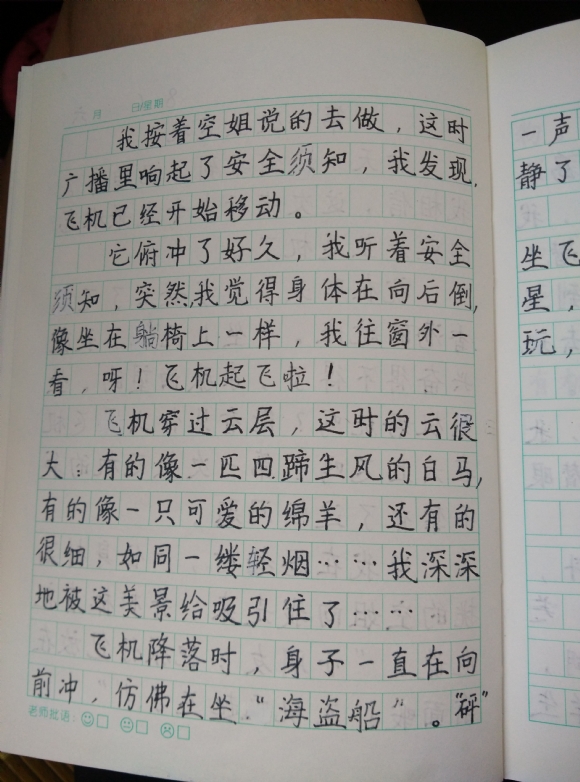 月 日 星期
我按着空姐说的去做，这时
广播里响起了安全须知，我发现，
飞机已经开始移动。
它俯冲了好久，我听着安全
须知，突然，我觉得身体在向后倒，
像坐在躺椅上一样，我往窗外一
看，呀！飞机起飞啦！
飞机穿过云层，这时的云很
大：有的像一匹四蹄生风的白马，
有的像一只可爱的绵羊，还有的
很细，如同一缕轻烟……我深深
地被这美景给吸引住了……
飞机降落时，身子一直在向
前冲，仿佛在坐“海盗船”。“砰”
老师批语：
一声
静了
坐飞
星，
玩，